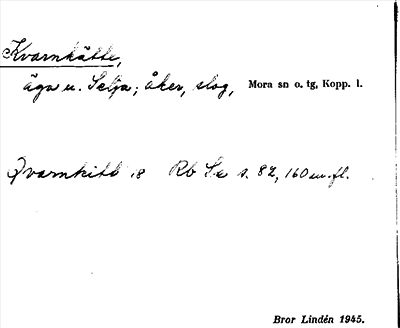 Kvarnkätte,
äga u. Selja; åker, slog, Mora sn o. tg, Kopp. l.
Qvarnkitt 18 Rb Se s. 82, 160 m. fl.
Bror Lindén 1945.